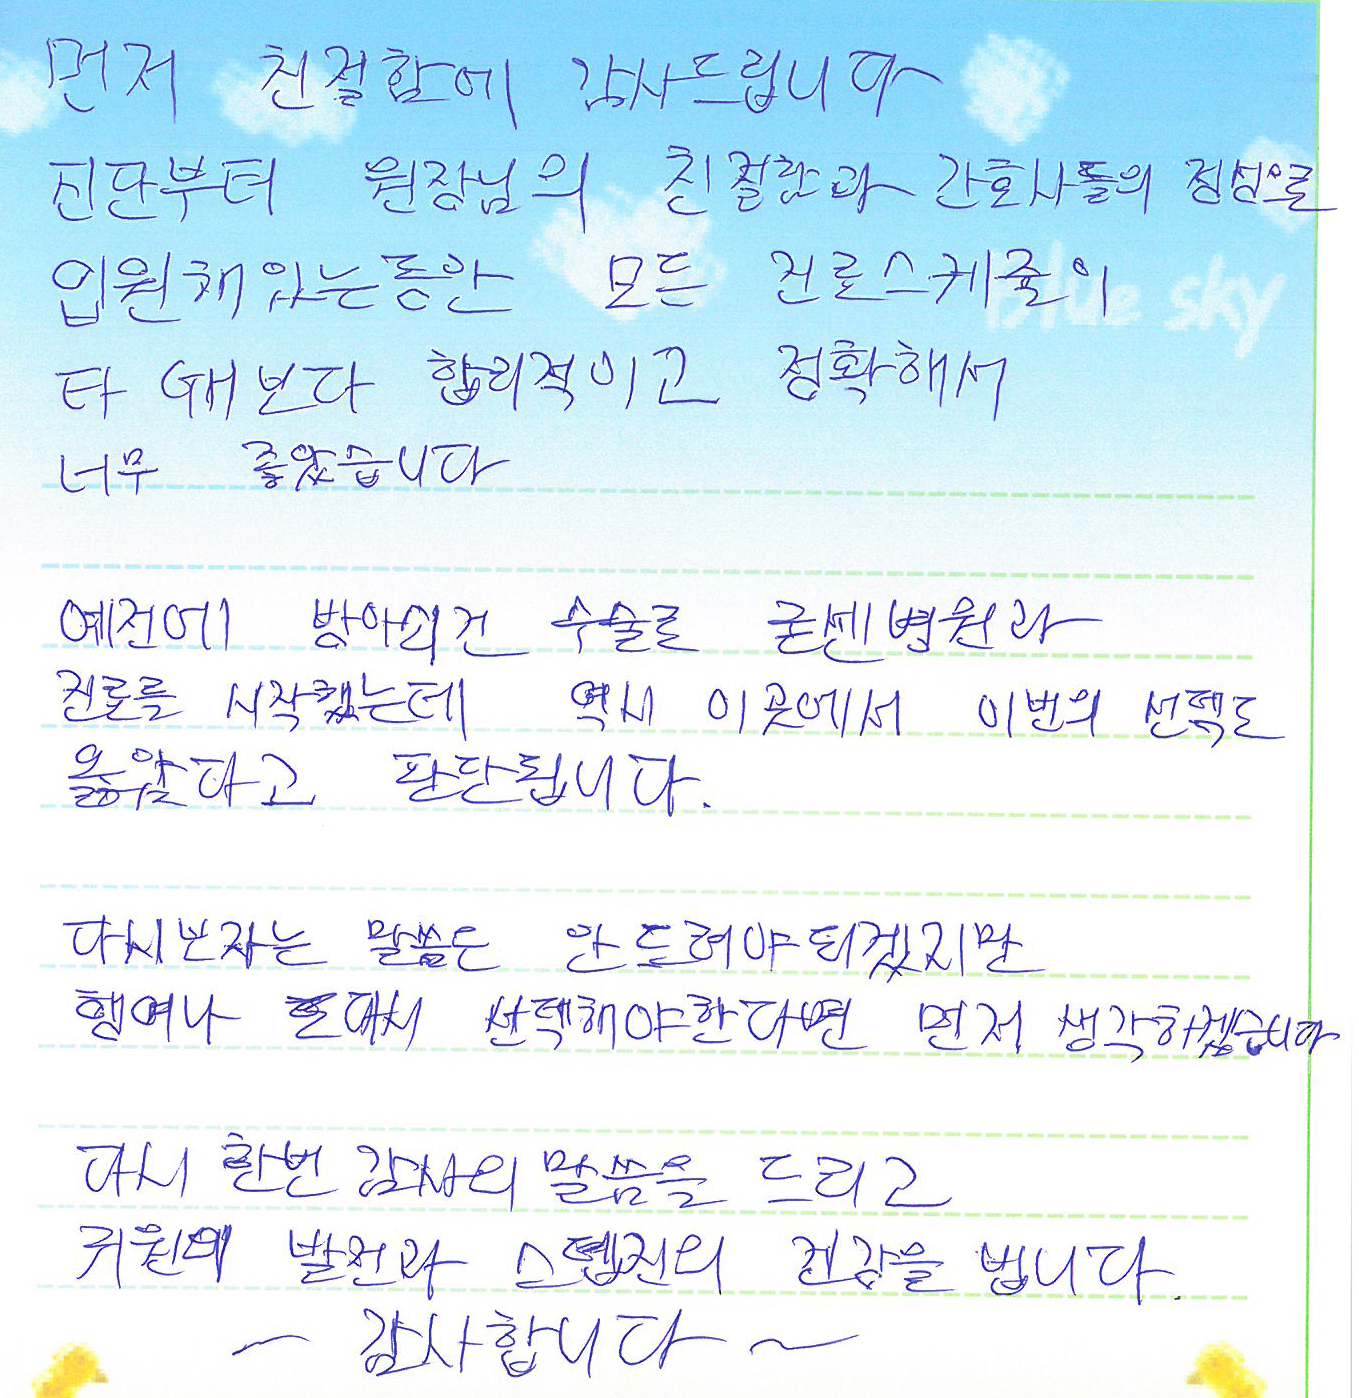 먼저 친절함에 감사드립니다
진단부터 원장님의 친절함과 간호사들의 정성으로
입원해있는동안 모든 진료스케줄이
타 보다 합리적이고 정확해서
너무 좋았습니다
Blue sky
예전에 방아쇠건 수술로 굳센병원과
진료를 시작했는데 역시 이곳에서 이번의 선택도
옳았다고 판단됩니다.
다시보자는 말씀은 안드려야 되겠지만
행여나 선택해야한다면 먼저 생각하겠습니다
다시 한번 감사의 말씀을 드리고
귀원의 발전과 스텝진의 건강을 빕니다.
~ 감사합니다 ~